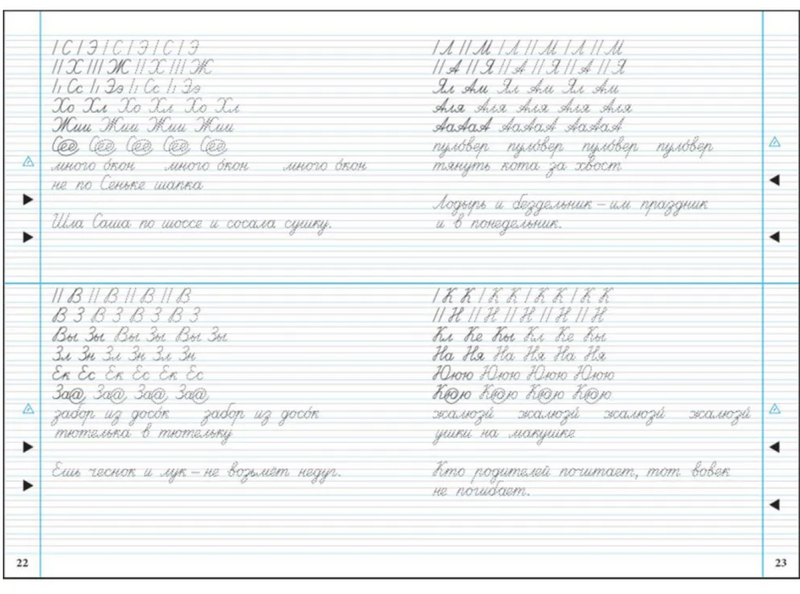 I С I Э I С I Э I С I Э
I I Х I I I Ж I I Х I I I Ж
I ı Сс I ı Ээ I ı Сс I ı Ээ
Хо Хл Хо Хл Хо Хл
Жии Жии Жии Жии
много о́кон много о́кон много о́кон
не по Сеньке шапка
Шла Саша по шоссе и сосала сушку.
I Л I I М I Л I I М I Л I I М
I I А I I Я I I А I I Я I I А I I Я
Ял Ам Ял Ам Ял Ам
Аля Аля Аля Аля Аля
АаАаА АаАаА АаАаА
пуло́вер пуло́вер пуло́вер пуло́вер
тянуть кота за хвост
Лодырь и бездельник – им праздник
и в понедельник.
I I В I I В I I В I I В
В З В З В З В З
Вы Зы Вы Зы Вы Зы
Зл Зн Зл Зн Зл Зн
Ек Ес Ек Ес Ек Ес
За@ За@ За@ За@
забор из досо́к забор из досо́к
тютелька в тютельку
Ешь чеснок и лук – не возьмёт недуг.
I К К I К К I К К I К К
I I Н I I Н I I Н I I Н I I Н
Кл Ке Кы Кл Ке Кы
На Ня На Ня На Ня
Ююю Ююю Ююю Ююю
К@ю К@ю К@ю К@ю
жалюзи́ жалюзи́ жалюзи́ жалюзи́
ушки на макушке
Кто родителей почитает, тот вовек
не погибает.
22
23